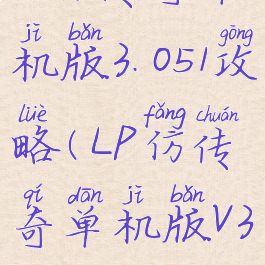 jī bǎn gōng
机版3.051攻
lüè fǎng chuán
略(LP仿传
qí dān jī bǎn
奇单机版V3